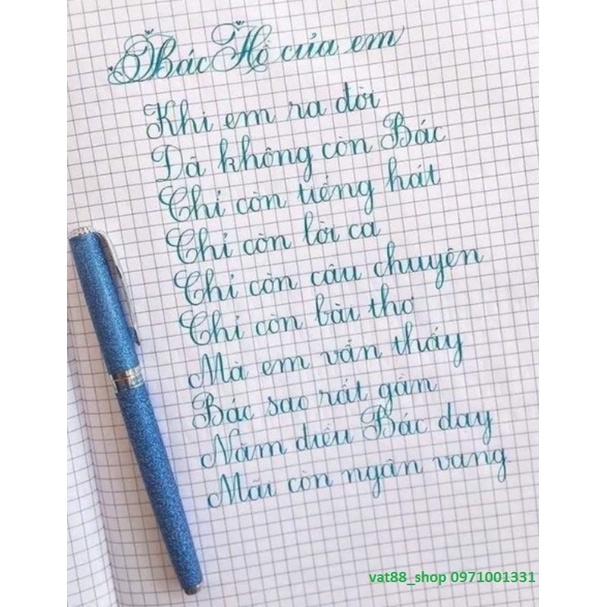 Bác Hồ của em
Khi em ra đời
Đã không còn Bác
Chỉ còn tiếng hát
Chỉ còn lời ca
Chỉ còn câu chuyện
Chỉ còn bài thơ
Mà em vẫn thấy
Bác sao rất gần
Năm điều Bác dạy
Mãi còn ngân vang
vat88_shop 0971001331